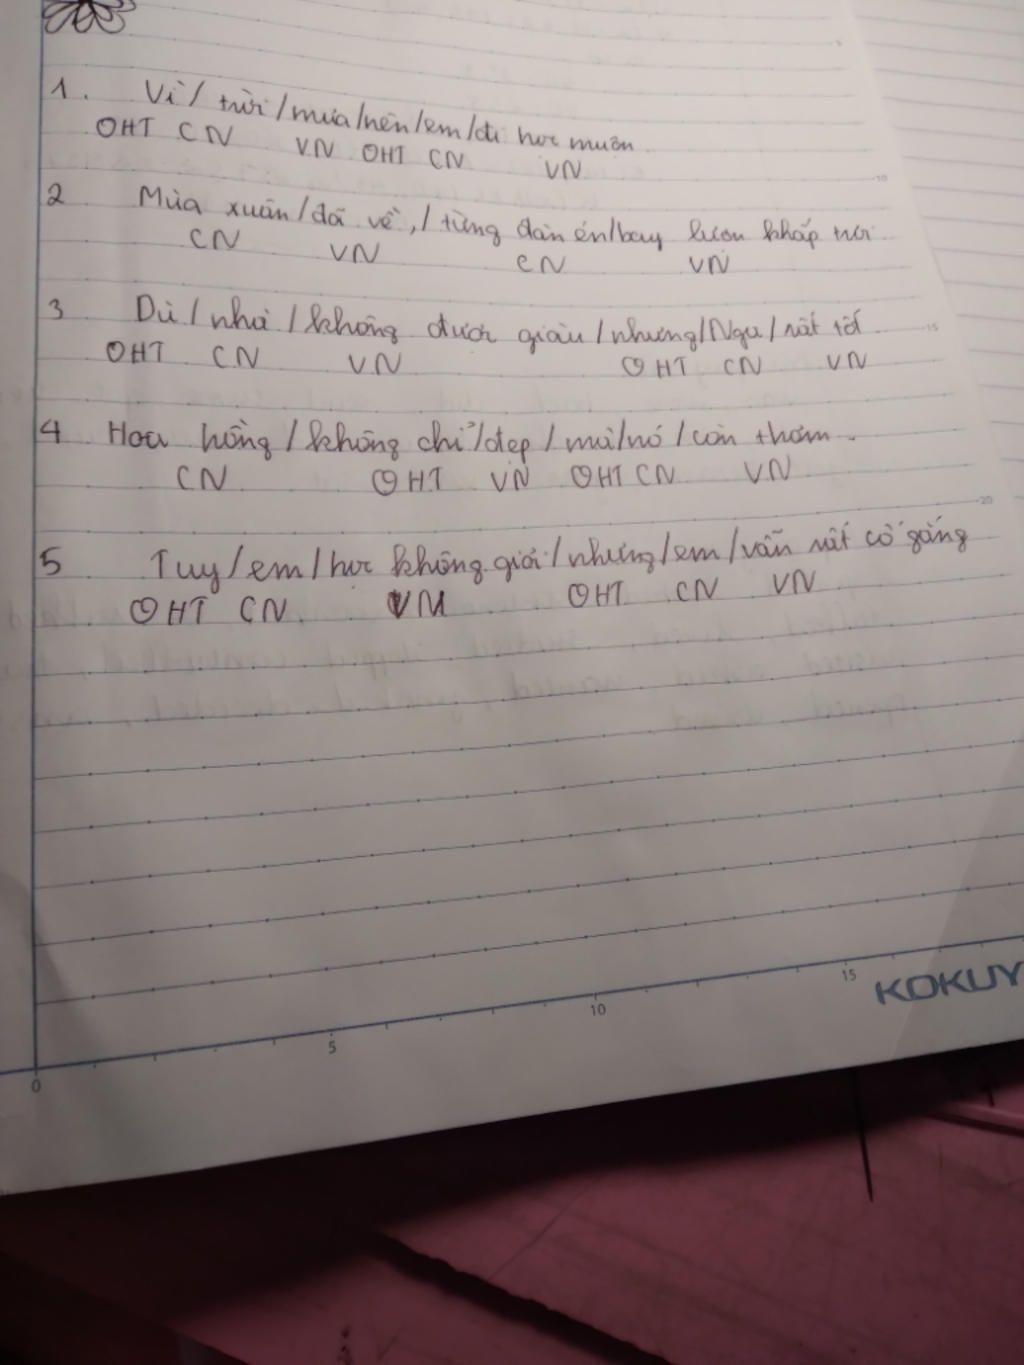 1. Vì / trời / mưa / nên / em / đi học muộn.
QHT CN VN QHT CN VN
2 Mùa xuân / đã về, / từng đàn én / bay lượn khắp nơi
CN VN CN VN
3 Dù / nhà / không được giàu / nhưng / Ngu / rất tốt
QHT CN VN QHT CN VN
4 Hoa hồng / không chỉ / đẹp / mà / nó / còn thơm.
CN QHT VN QHT CN VN
5 Tuy / em / học không giỏi / nhưng / em / vẫn rất cố gắng
QHT CN VN QHT CN VN
10
15
20
0 5 10 15
KOKUY